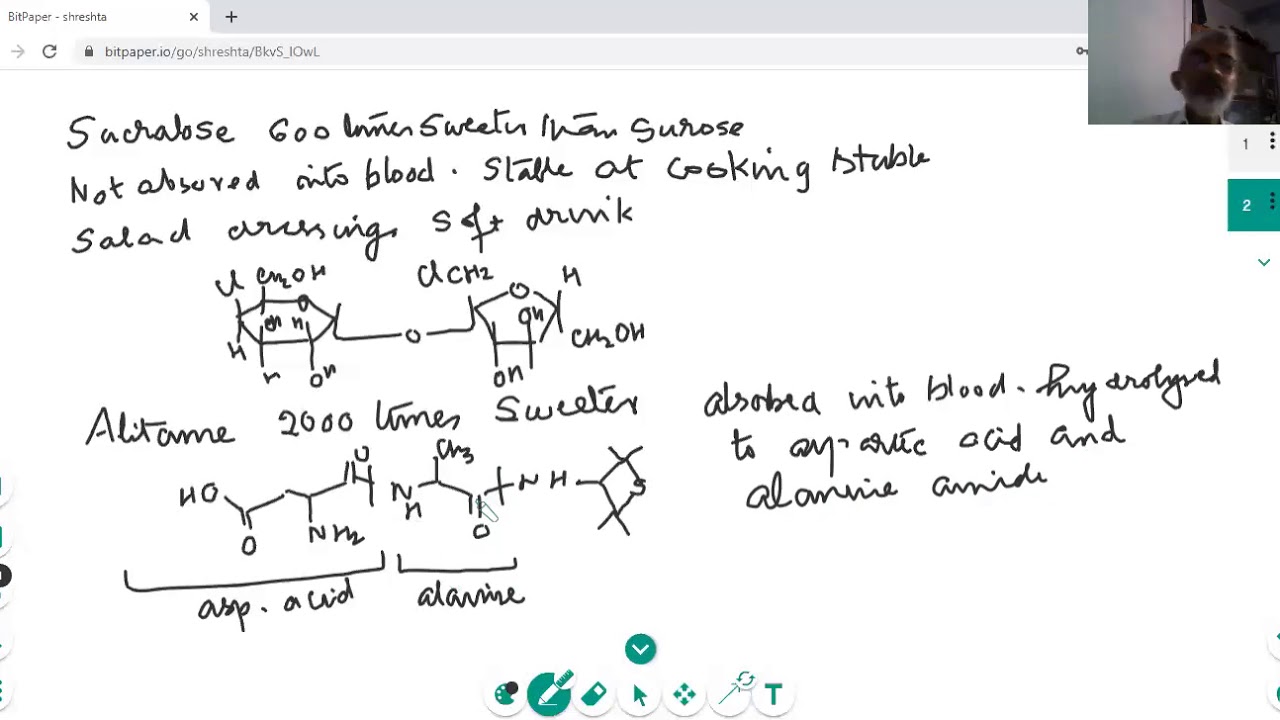 BitPaper - shreshta
bitpaper.io/go/shreshta/BkvS_IOwL
Sucralose 600 times Sweeter than Surose
Not absored into blood. Stable at cooking stable
Salad dressing, Soft drink
Cl CH2OH ClCH2 O H
O
OH H OH
H O CH2OH
H OH OH
Alitame 2000 times Sweeter
absorbed into blood. hydrolysed
to aspartic acid and
alanine amide
O CH3
HO N NH S
H
O NH2 O
asp. acid alanine
1
2
T